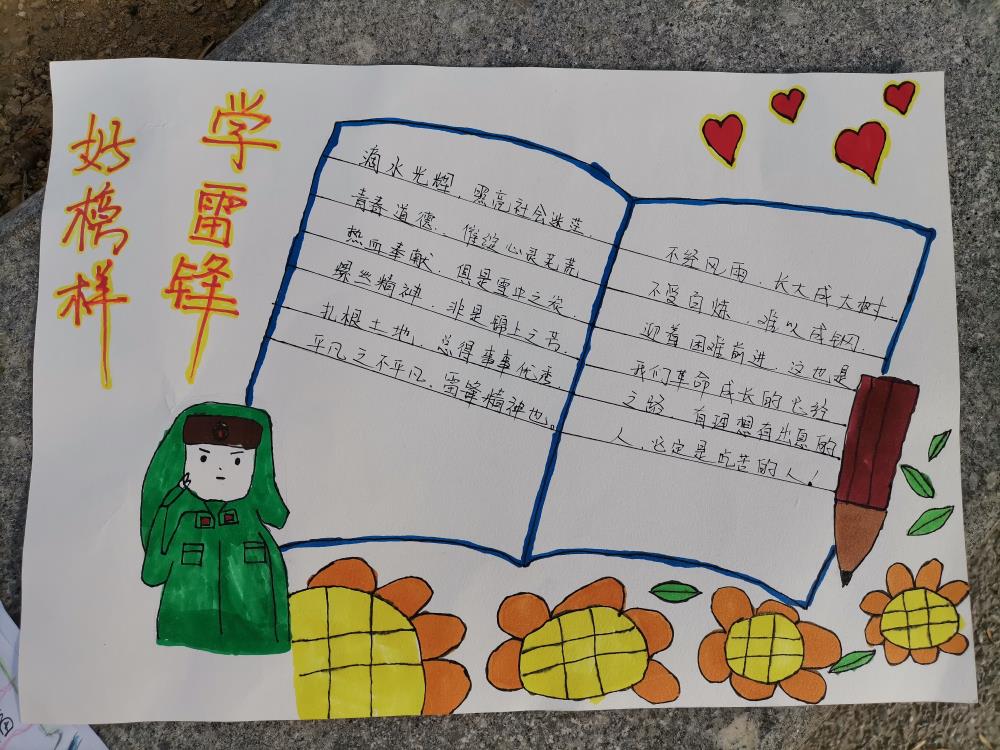 学雷锋
好榜样
滴水光辉，照亮社会迷茫.
青春道德. 催绽心灵芜荒
热血奉献. 俱是雪中之炭.
螺丝精神. 非是锦上之苦.
扎根土地. 总得事事优秀
平凡之不平凡. 雷锋精神也。
不经风雨. 长大成大树.
不受百炼. 难以成钢.
迎着困难前进. 这也是
我们革命成长的必经
之路. 有理想有出息的
人. 必定是吃苦的人！